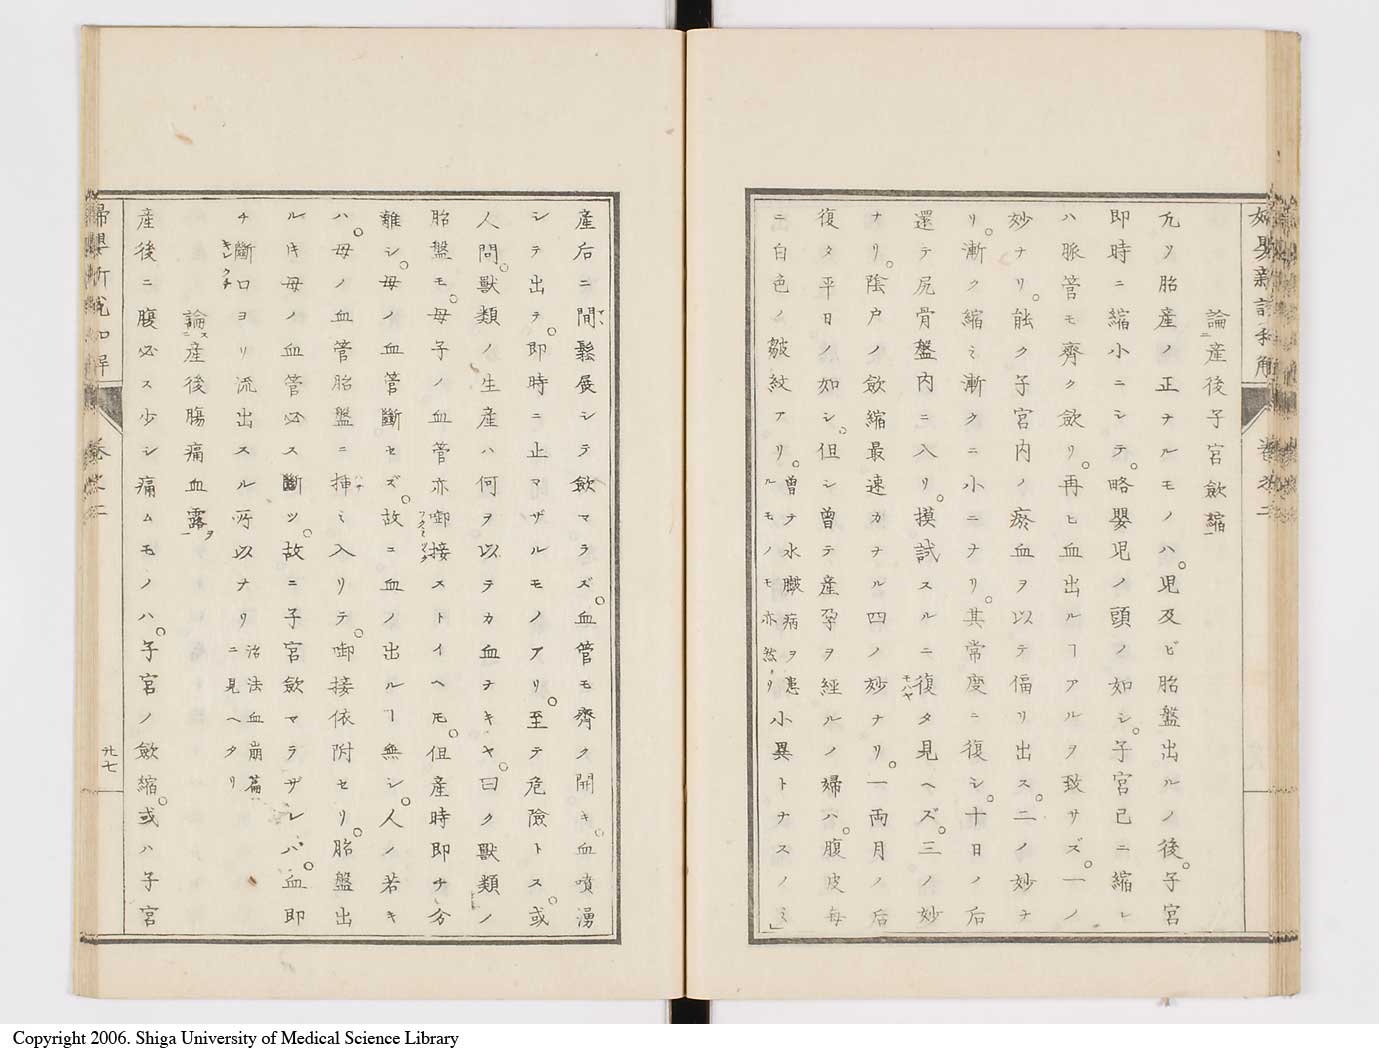 婦嬰新説和解 卷之二
論ニ産後子宮歛縮一
凡ソ胎産ノ正ナルモノハ。児及ビ胎盤出ルノ後。子宮
即時ニ縮小ニシテ。略嬰児ノ頭ノ如シ。子宮已ニ縮レ
ハ脈管モ齊ク歛リ。再ヒ血出ルヿアルヲ致サズ。一ノ
妙ナリ。能ク子宮内ノ瘀血ヲ以テ偪リ出ス。二ノ妙ナ
リ。漸ク縮ミ漸クニ小ニナリ。其常度ニ復シ。十日ノ后
還テ尻骨盤内ニ入リ。摸試スルニ復タモハヤ見ヘズ。三ノ妙
ナリ。陰戸ノ歛縮最速カナル四ノ妙ナリ。一両月ノ后
復タ平日ノ如シ。但シ曽テ産孕ヲ經ルノ婦ハ。腹皮毎
ニ白色ノ皺紋アリ。曽ナ水臌病ヲ患ルモノモ亦然リ小異トナスノミ」
産后ニ間鬆展シテ歛マラズ。血管モ齊ク開キ。血噴湧
シテ出テ。即時ニ止マザルモノアリ。至テ危險トス。或
人問。獸類ノ生産ハ何ヲ以テカ血ヲキヤ。曰ク獸類ノ
胎盤モ。母子ノ血管亦啣接フクミツグストイヘ𪜈。但産時即チ分
離シ。母ノ血管斷セズ。故ニ血ノ出ルヿ無シ。人ノ若キ
ハ。母ノ血管胎盤ニ挿ミ入リテ。啣接依附セリ。胎盤出
ルキ母ノ血管必ス斷ツ。故ニ子宮歛マラザレバ。血即
チ斷口キレクチヨリ流出スル所以ナリ 治法血崩篇ニ見ヘタリ
論ス産後腸痛血露ヲ一
産後ニ腹必ス少シ痛ムモノハ。子宮ノ歛縮。或ハ子宮
婦嬰新説和解 卷之二 廿七
Copyright 2006. Shiga University of Medical Science Library